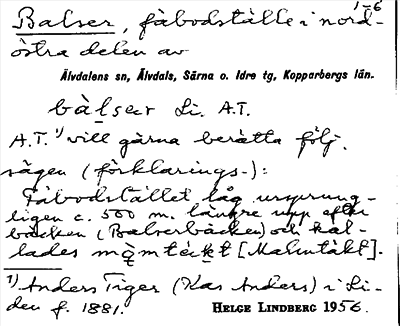 1-6
Balser, fäbodställe i nord-
östra delen av
Älvdalens sn, Älvdals, Särna o. Idre tg, Kopparbergs län.
bàlser Li. A.T.
A.T.¹) vill gärna berätta följ.
sägen (förklarings-):
Fäbodstället låg ursprung-
ligen c. 500 m. längre upp efter
bäcken (Balserbäcken) och kal-
lades màmtäkt [Malmtäkt].
¹) Anders Tiger (Kas Anders) i Li-
den f. 1881. HELGE LINDBERG 1956.